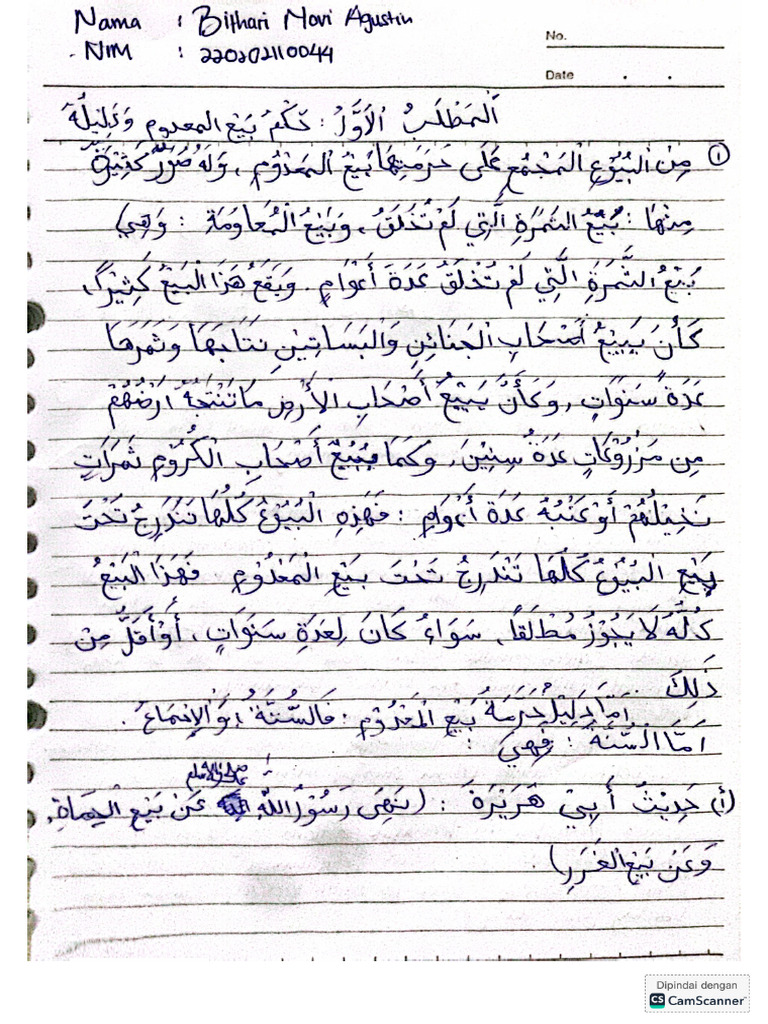 Nama : Bithari Novi Agustin
NIM : 220202110044
No.
Date . .
اَلْمَطْلَبُ الْأَوَّلُ : حُكْمُ بَيْعِ المعدوم وَدَلِيْلُهُ
① مِنَ الْبُيُوْعِ الْمَجْمَعِ عَلَى حَرَمَتِهَا بَيْعُ الْمَعْدُوْمِ، وَلَهُ صُوَرٌ كَثِيْرَةٌ
مِنْهَا : بَيْعُ الثَّمَرَةِ الَّتِي لَمْ تُخْلَقْ، وَبَيْعُ الْمُعَاوَمَةِ : وَهِيَ
بَيْعُ الثَّمَرَةِ الَّتِي لَمْ تُخْلَقْ عَدَةَ أَعْوَامٍ. وَيَقَعُ هَذَا الْبَيْعُ كَثِيْرًا،
كَأَنْ يَبِيْعَ أَصْحَابِ الْجَنَائِنِ وَالْبَسَاتِيْنِ نَتَاجَهَا وَثَمَرَهَا
عَدَةَ سَنَوَاتٍ، وَكَأَنْ يَبِيْعَ أَصْحَابِ الْأَرْضِ مَا تَنْتَجُهُ أَرْضُهُمْ
مِنْ مَزْرُوْعَاتٍ عَدَةَ سِنِيْنَ، وَكَمَا يَبِيْعُ أَصْحَابِ الْكُرُوْمِ ثَمَرَاتِ
نَخِيْلُهُمْ أَوْ عَنْبُهُ عَدَةَ أَعْوَامٍ : فَهَذِهِ الْبُيُوْعُ كُلُّهَا تَنْدَرِجُ تَحْتَ
بَيْعِ الْبُيُوْعُ كُلُّهَا تَنْدَرِجُ تَحْتَ بَيْعِ الْمَعْدُوْمِ. فَهَذَا الْبَيْعُ
كُلُّهُ لَا يَجُوْزُ مُطْلَقًا، سَوَاءٌ كَانَ لِعَدَةِ سَنَوَاتٍ، أَوْ أَقَلَّ مِنْ
ذَلِكَ. أَمَّا دَلِيْلُ حَرَمَةُ بَيْعِ الْمَعْدُوْمِ : فَالسُّنَّةُ، وَالْإِجْمَاعُ.
أَمَّا السُّنَّةُ : فَهِيَ :
أ) حَدِيْثُ أَبِيْ هُرَيْرَةَ : (نَهَى رَسُوْلُ اللهِ صلى الله عليه وسلم عَنْ بَيْعِ الْحَصَاةِ،
وَعَنْ بَيْعِ الْغَرَرِ).
Dipindai dengan
CS CamScanner